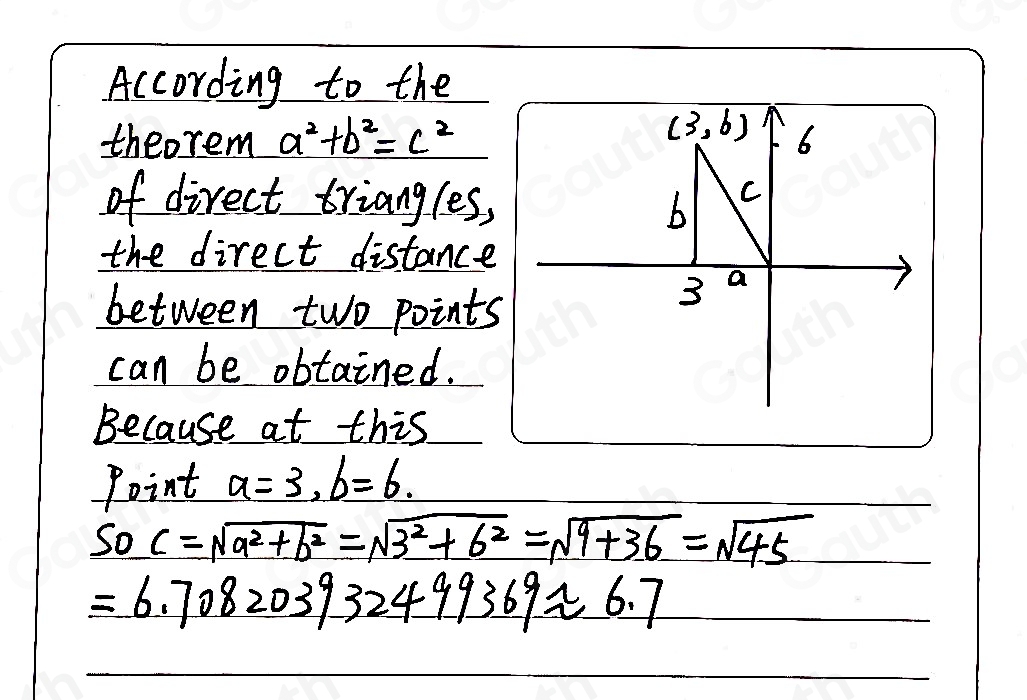 According to the
theorem a²+b²=c²
of direct triangles,
the direct distance
between two points
can be obtained.
Because at this
Point a=3, b=6.
So c=√a²+b² =√3²+6² =√9+36 =√45
=6.708203932499369≈6.7
(3,6)
6
b
c
3
a
Gauth